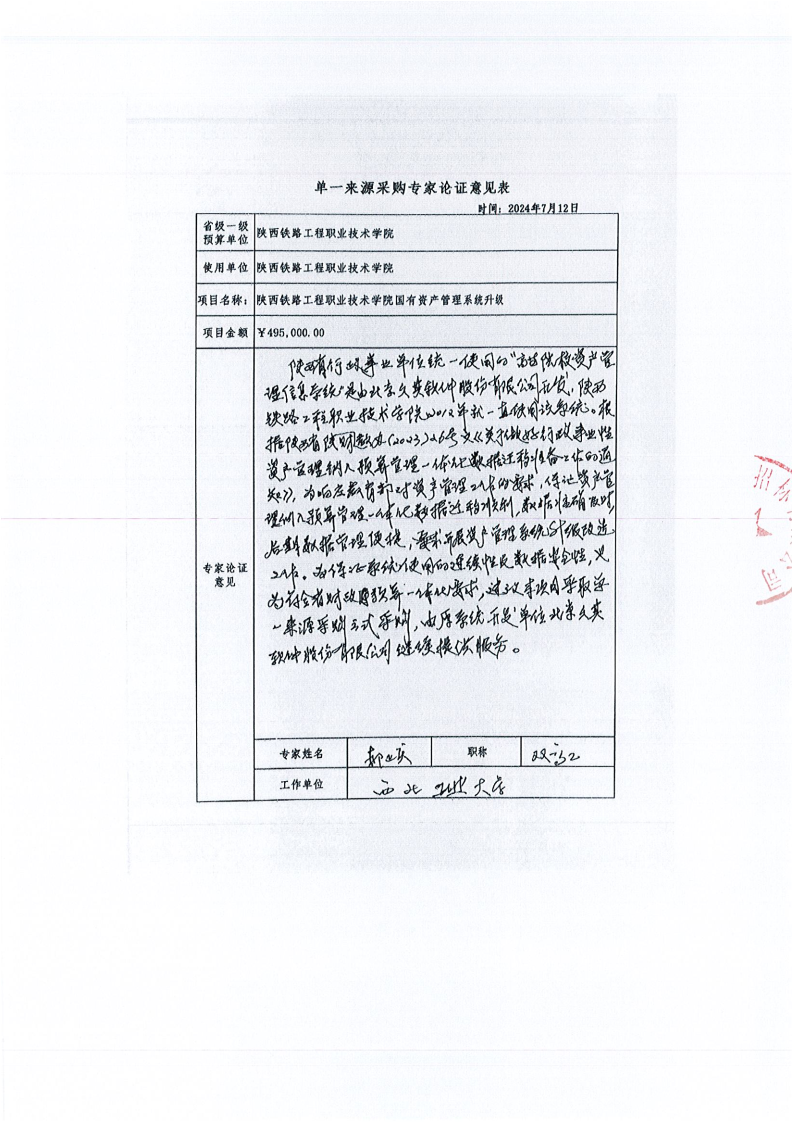 单一来源采购专家论证意见表
时间：2024年7月12日
省级一级预算单位 陕西铁路工程职业技术学院
使用单位 陕西铁路工程职业技术学院
项目名称： 陕西铁路工程职业技术学院国有资产管理系统升级
项目金额 ￥495,000.00
专家论证意见
陕西省行政事业单位统一使用的“高等院校资产管
理信息系统”是由北京久其软件股份有限公司开发，陕西
铁路工程职业技术学院2012年就一直使用该系统。根
据陕西省陕财办（2023）26号文《关于做好行政事业性
资产管理纳入预算管理一体化数据迁移准备工作的通
知》，为响应教育部对资产管理工作的要求，保证资产管
理纳入预算管理一体化数据迁移顺利，数据准确及时，
后期数据管理便捷，要求开展资产管理系统升级改造
工作。为保证系统使用的连续性及数据安全性，又
为符合省财政厅预算一体化要求，建议本项目采取单
一来源采购方式采购，由原系统开发单位北京久其
软件股份有限公司继续提供服务。
专家姓名 郝 职称 高工
工作单位 西北工业大学
招
司